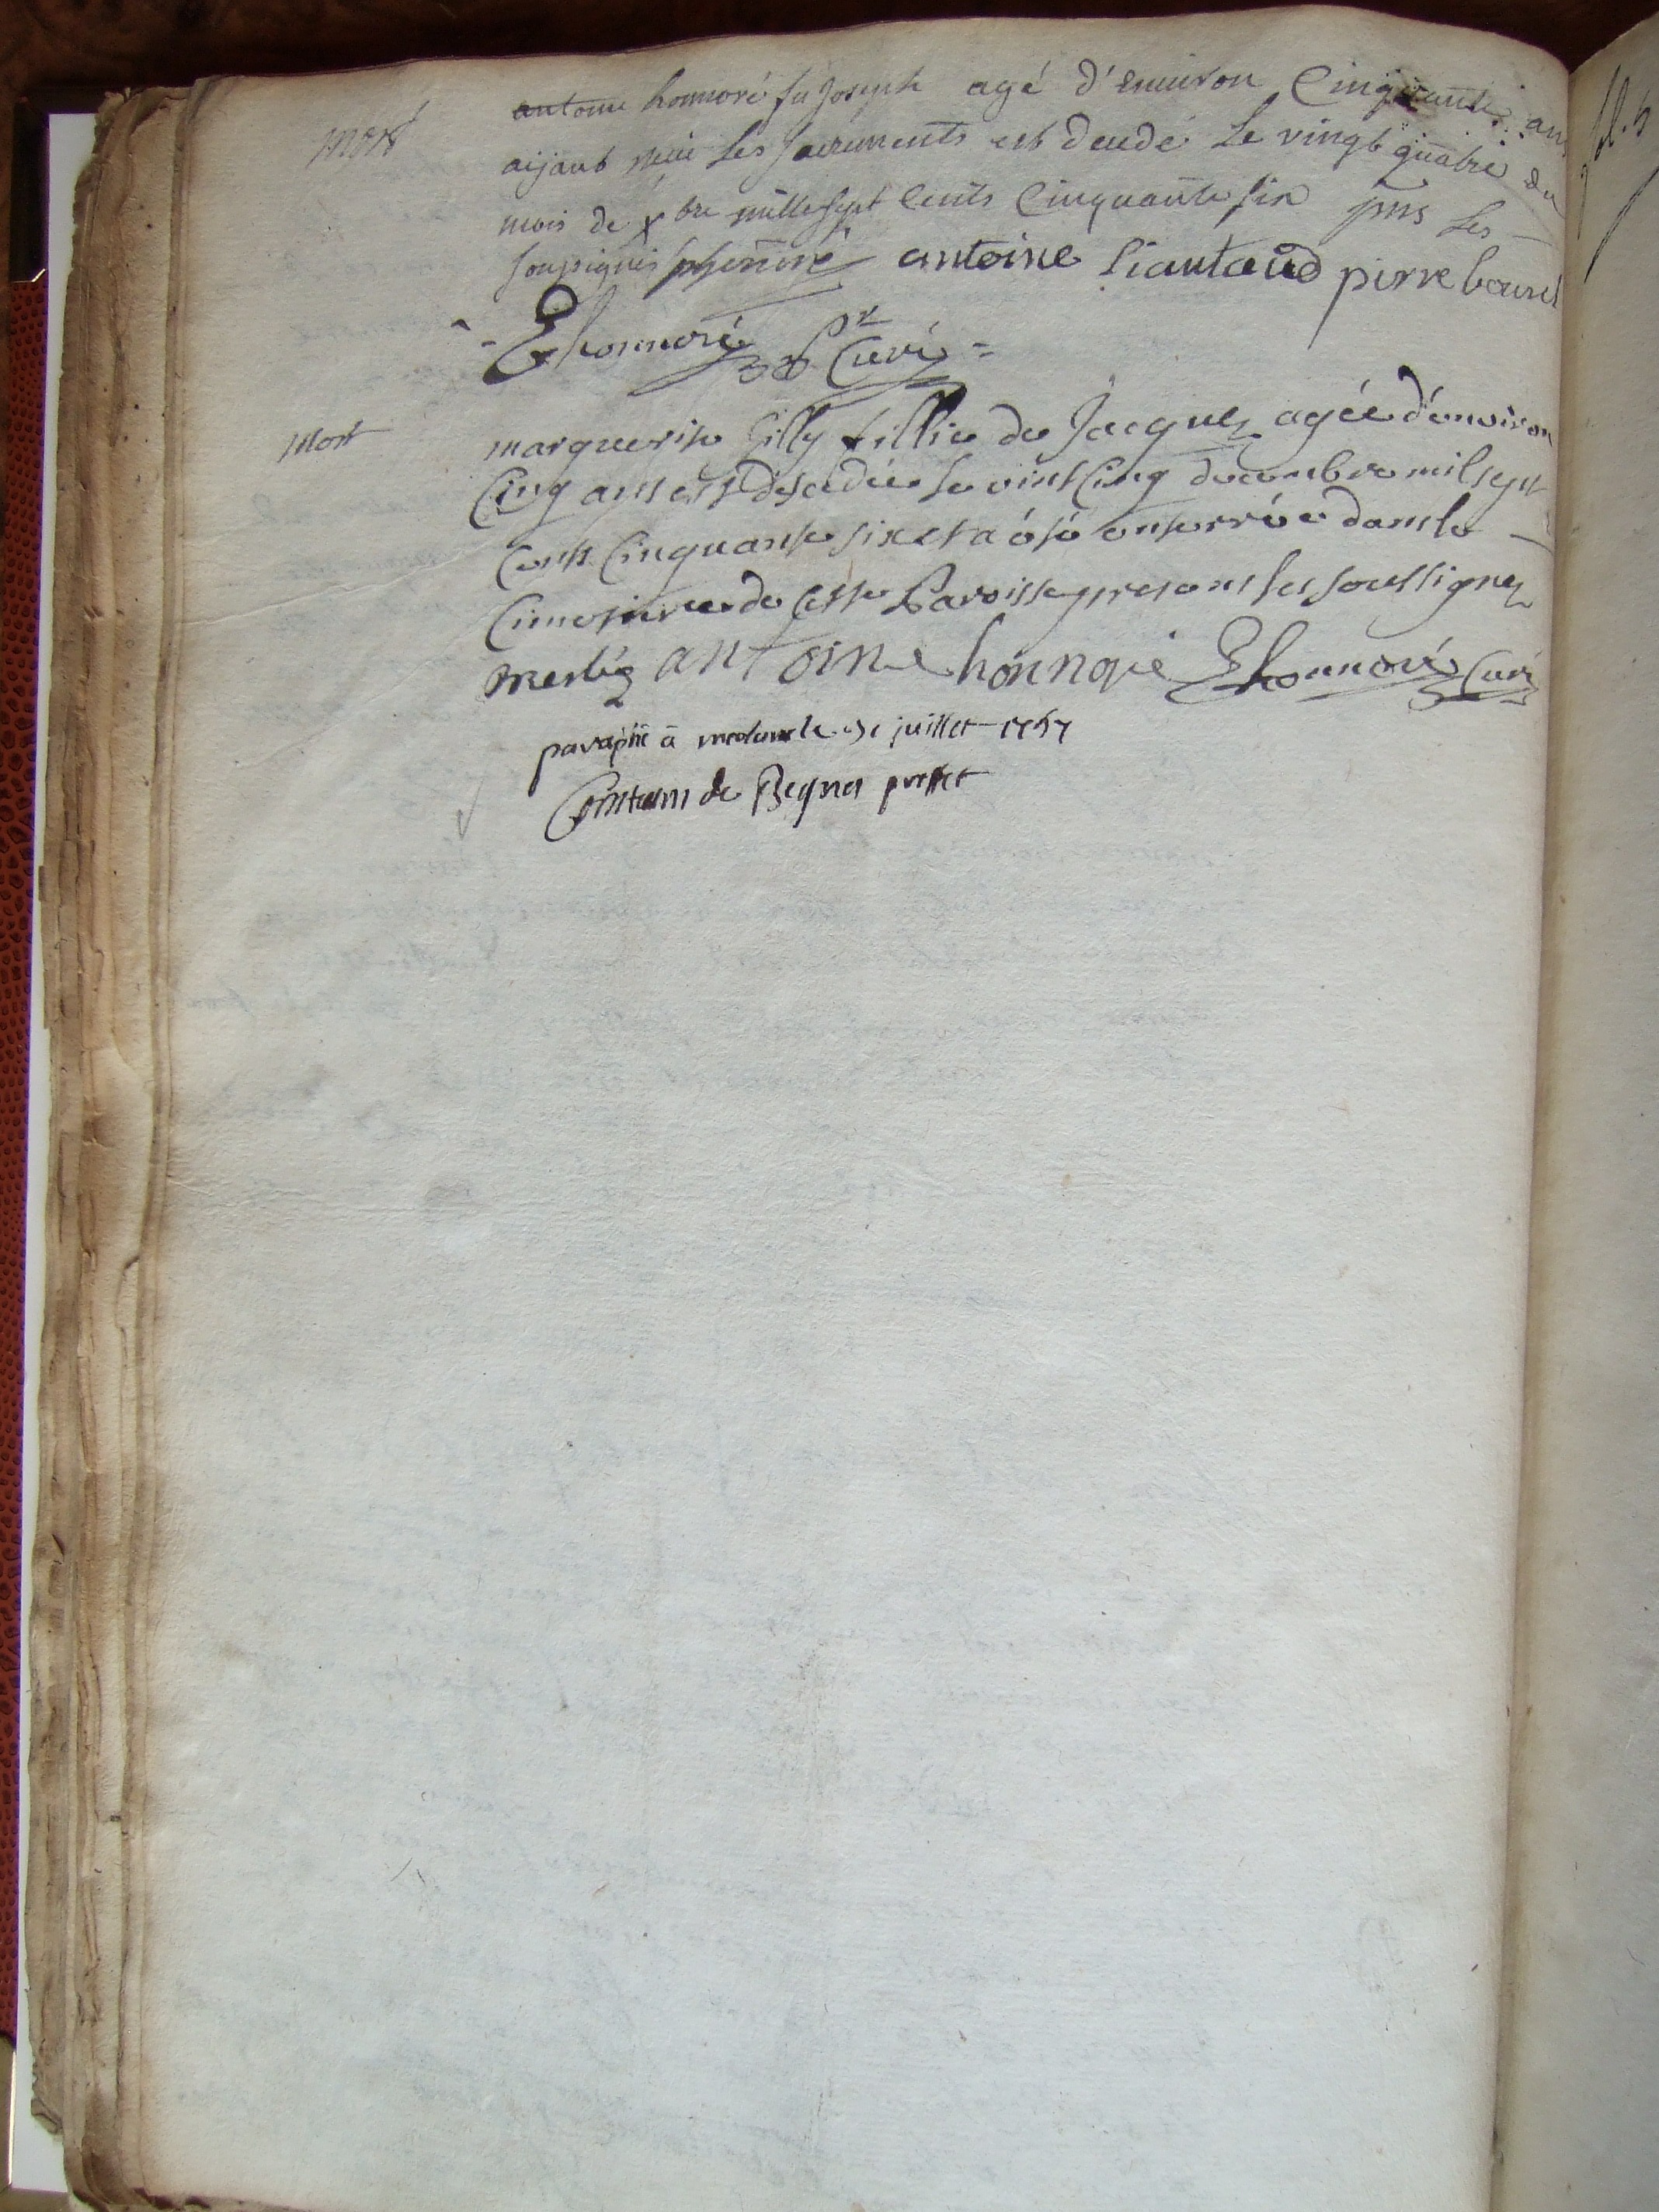 mort
antoine honnoré fu Joseph agé d'environ Cinquante ans
aijant reçeu les sacrements est decedé le vingt quatre du
mois de xbre mille sept cents Cinquante six pns les
soussignés antoine Liautaud pirre
Ehonnoré Curé
mort
marguerite Gilly fillie de Jacques agée d'environ
Cinq ans est desedée le vint Cinq decembre mil sept
Cents Cinquante six et a été enterrée dans le
Cimetiere de Cette Paroisse presens les soussignez
antoine honnoré Ehonnoré Curé
paraphé a juillet 1757
de Regnes